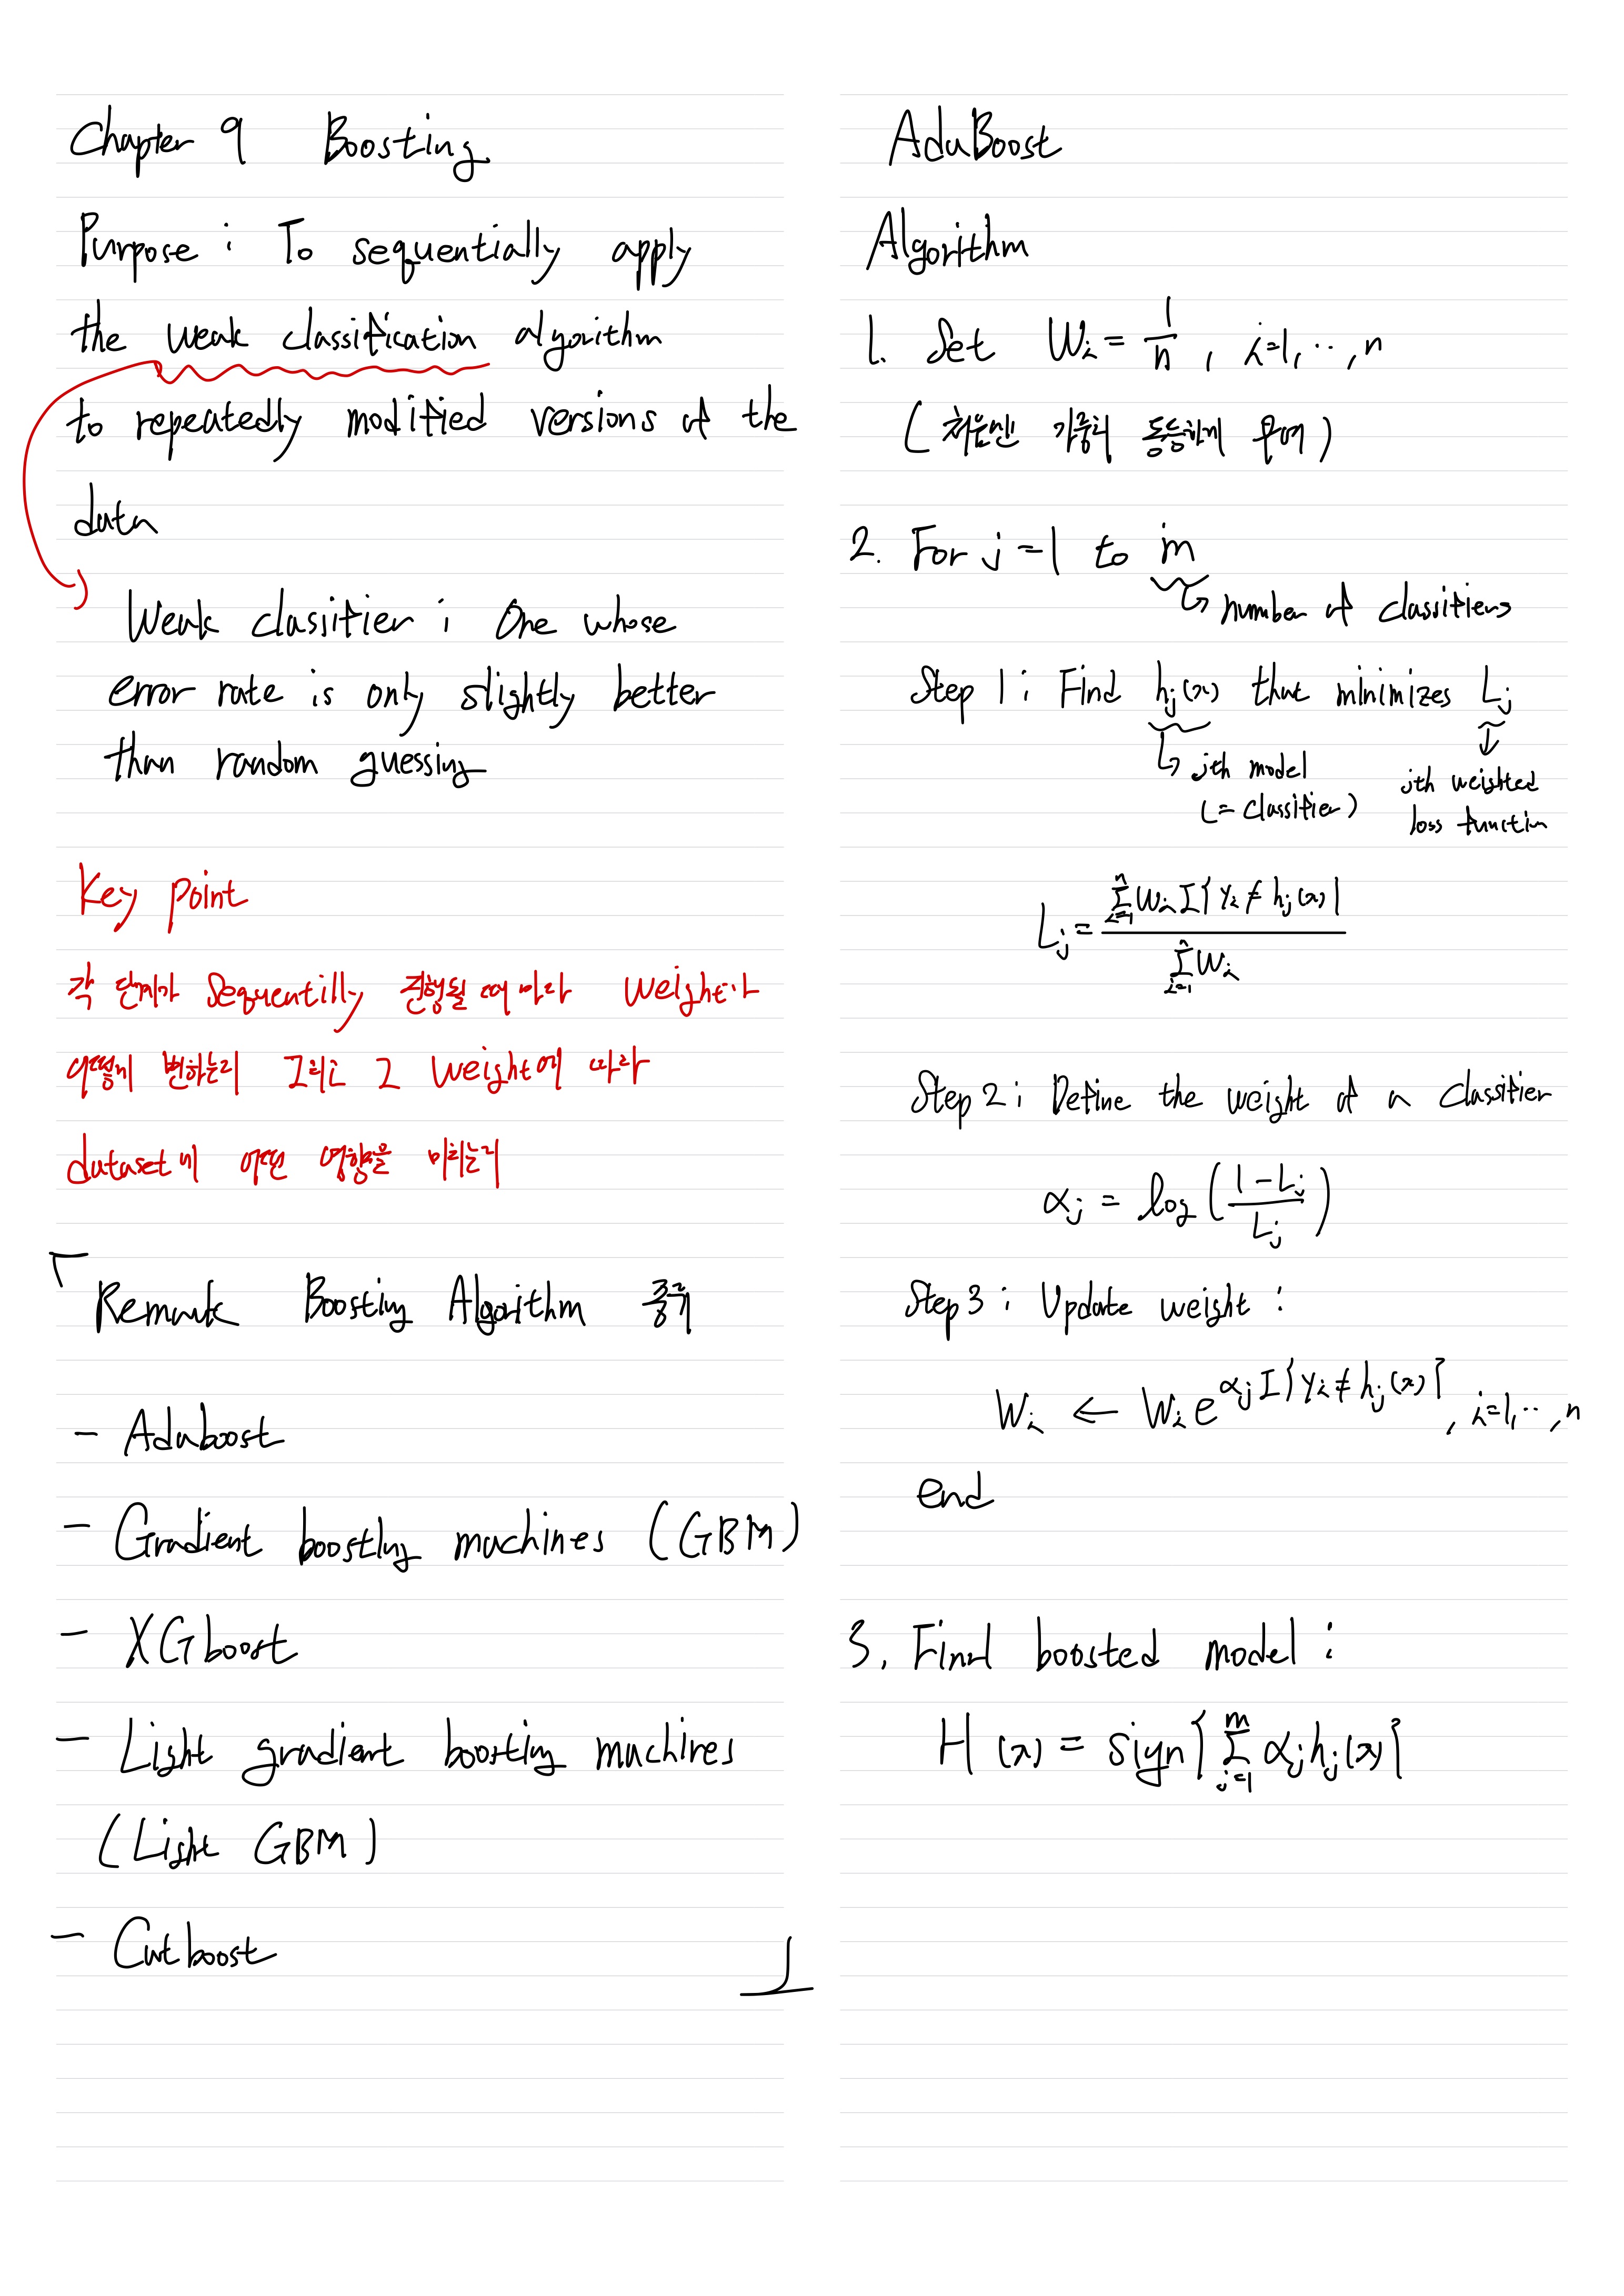 Chapter 9 Boosting
Purpose : To sequentially apply
the weak classification algorithm
to repeatedly modified versions of the
data
Weak classifier ; One whose
error rate is only slightly better
than random guessing
Key point
각 단계가 Sequentilly 진행될 때 마다 Weight가
어떻게 변하는지 그리고 그 weight에 따라
dataset에 어떤 영향을 미치는지
Remark Boosting Algorithm 종류
- Adaboost
- Gradient boosting machines (GBM)
- XGboost
- Light gradient boosting machines
(Light GBM)
- Catboost
AdaBoost
Algorithm
1. Set Wi = 1/n , i=1, ⋯, n
(처음엔 가중치 동등하게 부여)
2. For j=1 to m
↳ number of classifiers
Step 1 ; Find hj(x) that minimizes Lj
↳ jth model
(= classifier)
↓
jth weighted
loss function
Lj = Σ_{i=1}^{n} Wi I{Yi ≠ hj(x)} / Σ_{i=1}^{n} Wi
Step 2 ; Define the weight of a classifier
αj = log((1-Lj)/Lj)
Step 3 ; Update weight :
Wi ← Wi e^{αj I{Yi ≠ hj(x)}} , i=1, ⋯, n
end
3. Final boosted model :
H(x) = sign{Σ_{j=1}^{m} αj hj(x)}